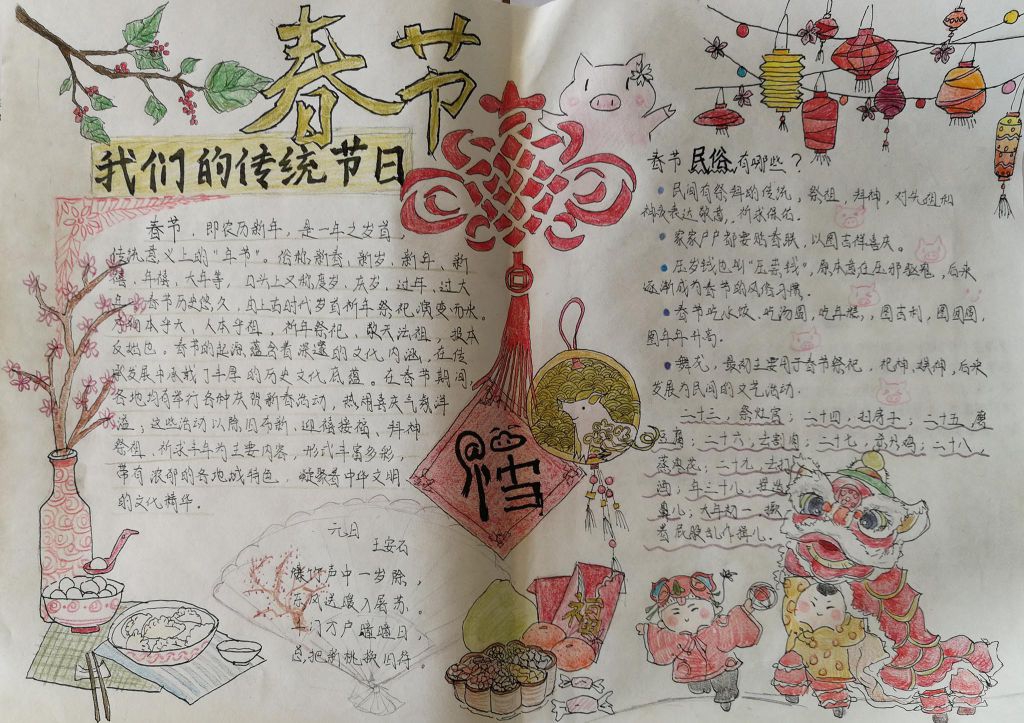 春节
我们的传统节日
春节，即农历新年，是一年之岁首，
传统意义上的“年节”。俗称新春、新岁、新年、新
禧、年禧、大年等，口头上又称度岁、庆岁、过年、过大
年。春节历史悠久，由上古时代岁首祈年祭祀演变而来。
万物本乎天、人本乎祖，祈年祭祀、敬天法祖，报本
反始也。春节的起源蕴含着深邃的文化内涵，在传
承发展中承载了丰厚的历史文化底蕴。在春节期间，
各地均有举行各种庆贺新春活动，热闹喜庆气氛洋
溢；这些活动以除旧布新、迎禧接福、拜神
祭祖、祈求丰年为主要内容，形式丰富多彩，
带有浓郁的各地域特色，凝聚着中华文明
的文化精华。
元日
王安石
爆竹声中一岁除，
东风送暖入屠苏。
千门万户曈曈日，
总把新桃换旧符。
福
春节民俗有哪些？
民间有祭拜的传统，祭祖，拜神，对先祖和
神灵表达敬意，祈求保佑。
家家户户都要贴春联，以图吉祥喜庆。
压岁钱也叫“压祟钱”，原本意在压邪驱鬼，后来
逐渐成为春节的风俗习惯。
春节吃水饺，吃汤圆，吃年糕，图吉利，图团圆，
图年年升高。
舞龙，最初主要用于春节祭祀，祀神娱神，后来
发展为民间的文艺活动。
二十三，祭灶官；二十四，扫房子；二十五，磨
豆腐；二十六，去割肉；二十七，杀鸡；二十八，
蒸枣花；二十九，去打
酒；年三十儿，捏造
鼻儿；大年初一，撅
着屁股乱作揖儿。